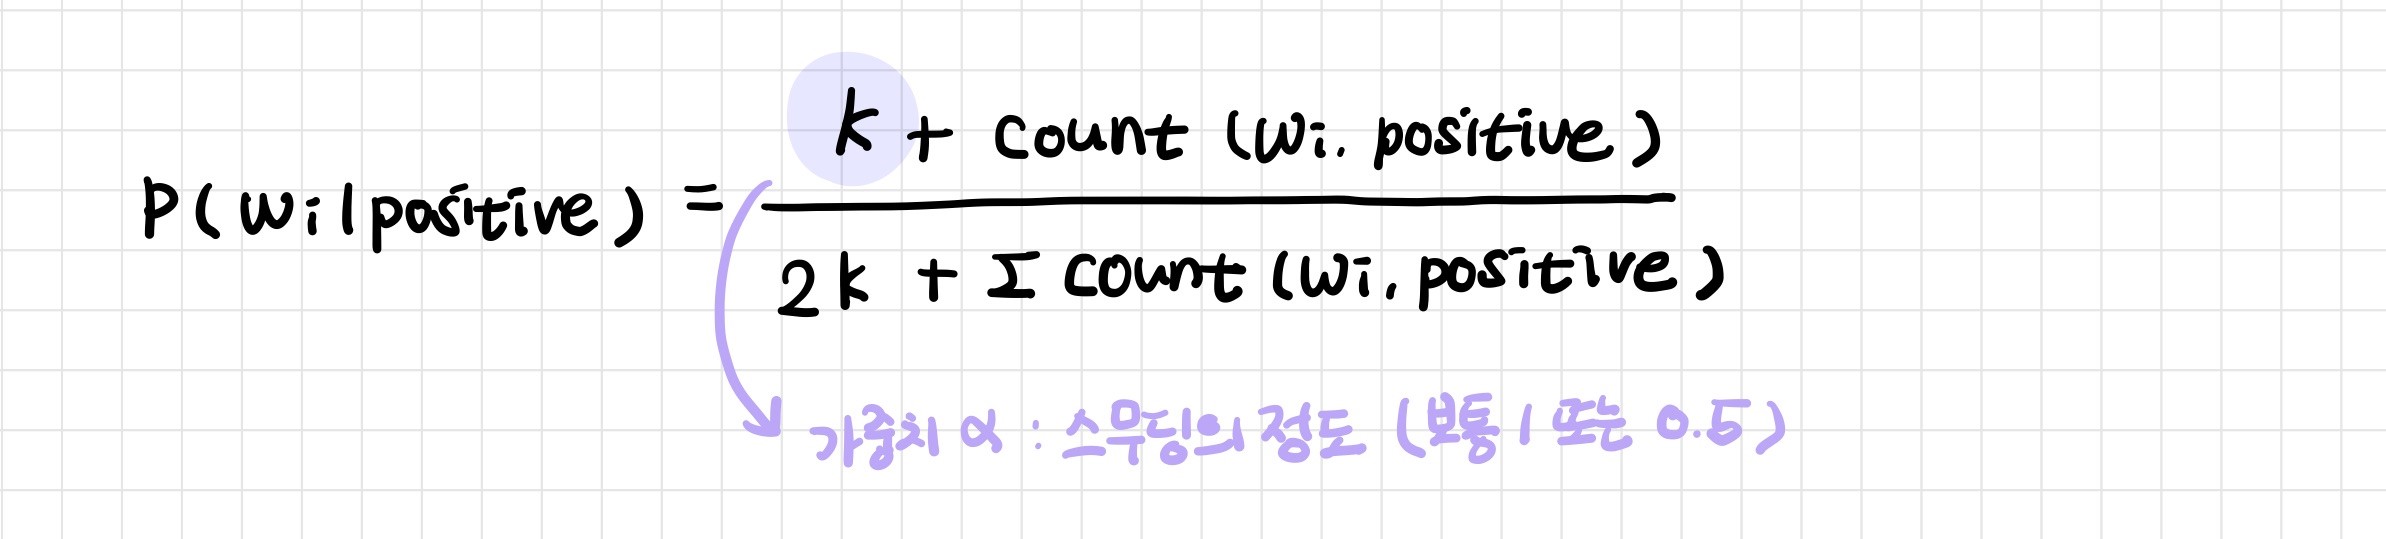 P(wi|positive) = k + count (wi. positive)
2k + Σ count (wi, positive)
가중치 α : 스무딩의 정도 (보통 1 또는 0.5)